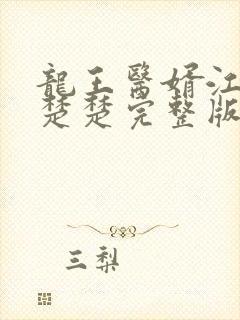 龍王醫婿江
楚楚完整版
三梨